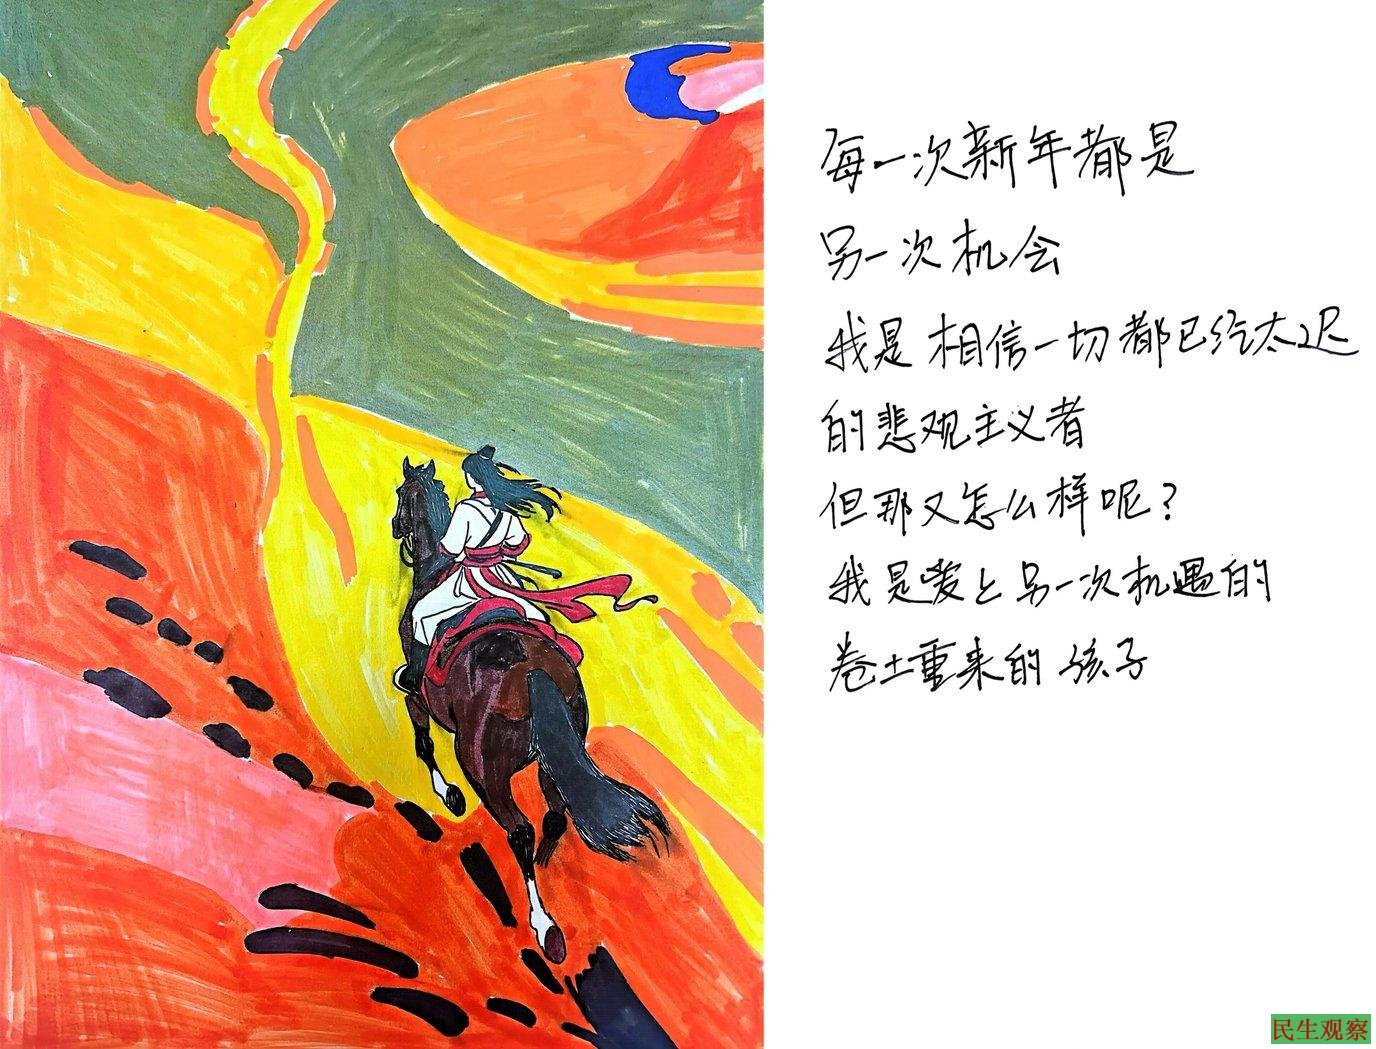 每一次新年都是
另一次机会
我是相信一切都已经太迟
的悲观主义者
但那又怎么样呢？
我是爱上另一次机遇的
卷土重来的孩子
民生观察